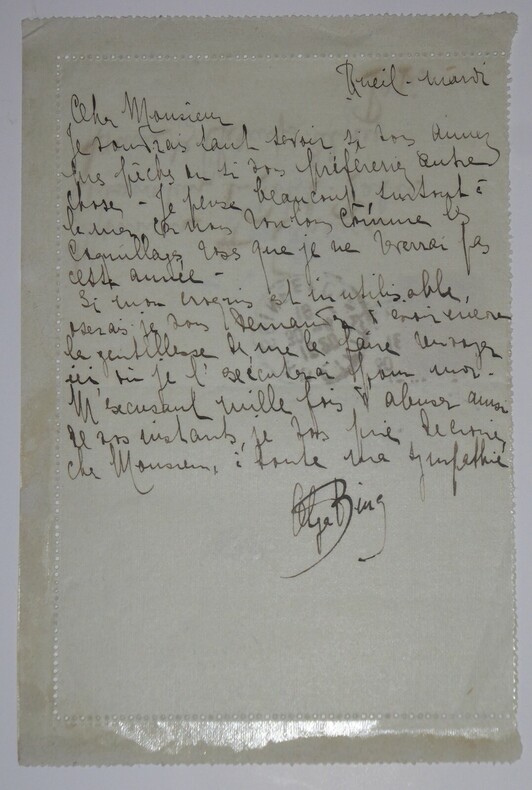 Rueil - mardi
Cher Monsieur
Je voudrais tant savoir si vous aimez
les pêches ou si vous préférerez autre
chose - Je pense beaucoup, surtout à
la mer, nous comme les
coquillages roses que je ne verrai pas
cette année -
Si mon croquis est inutilisable,
oserais je vous demander d'avoir encore
la gentillesse de me le faire renvoyer
ici, où je l'exécuterai pour moi -
M'excusant mille fois d'abuser ainsi
de vos instants, je vous prie de croire,
cher Monsieur, à toute ma sympathie
Olga Bing